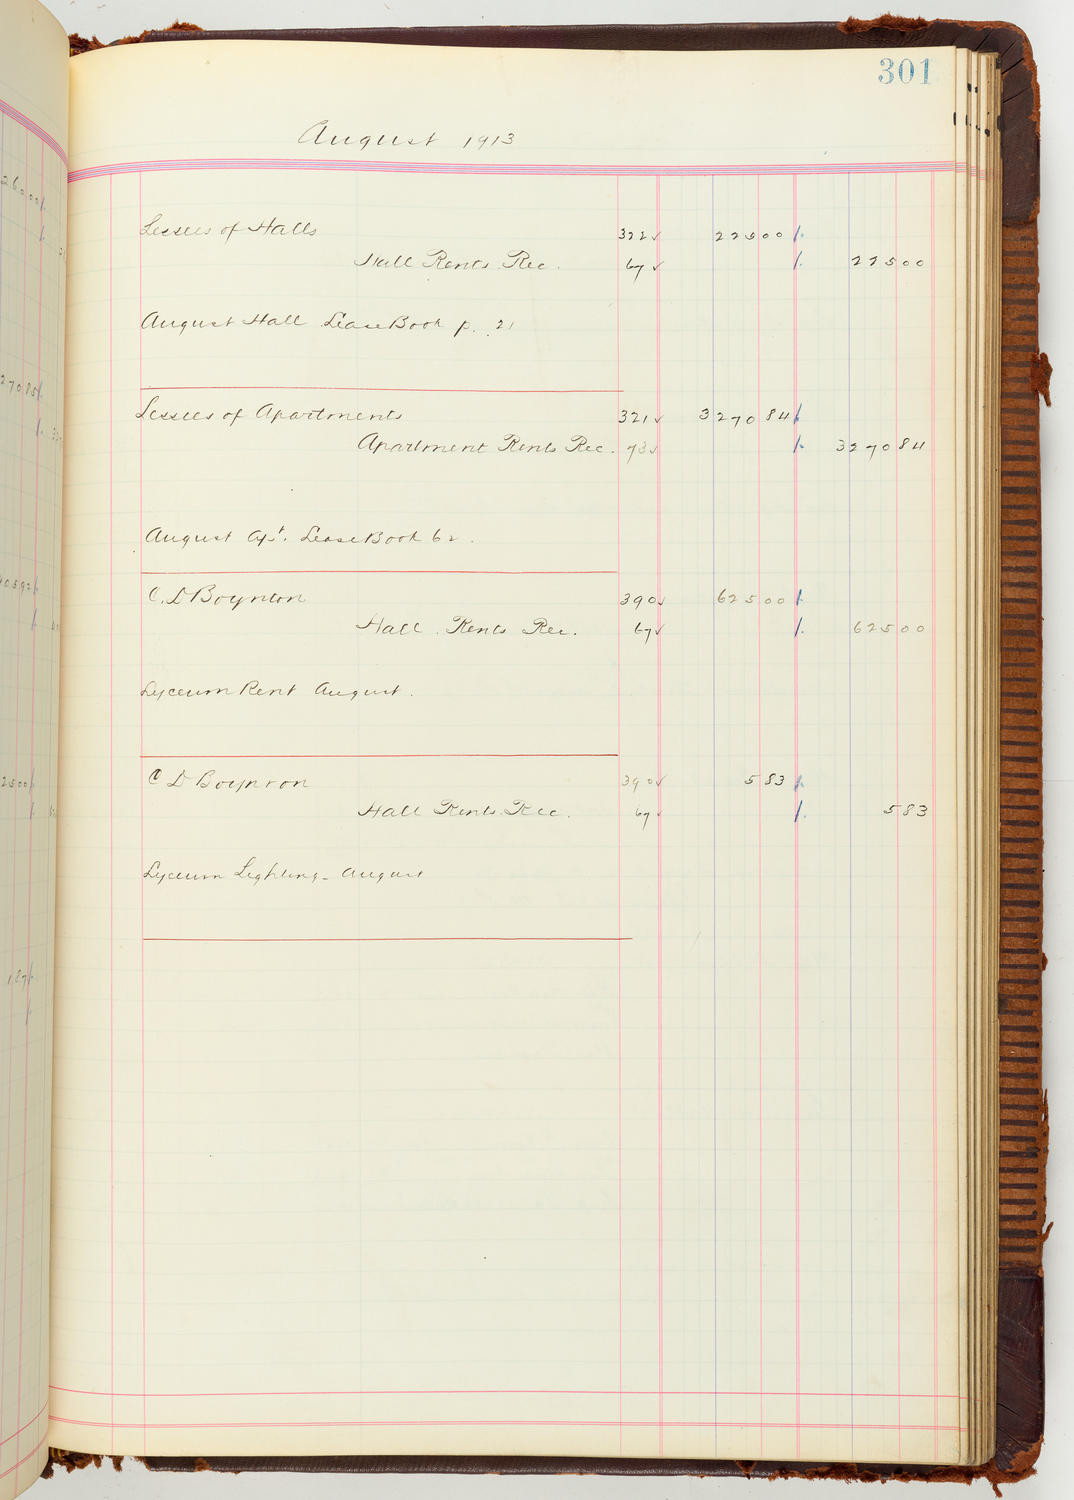 301
August 1913
Lessees of Halls 322 ✓ 225 00
Hall Rents Rec. 67 ✓ 225 00
August Hall Lease Book p. 21
Lessees of Apartments 321 ✓ 3270 84
Apartment Rents Rec. 73 ✓ 3270 84
August Apt. Lease Book 62.
C. D Boynton 390 ✓ 625 00
Hall Rents Rec. 67 ✓ 625 00
Lyceum Rent August.
C D Boynton 390 ✓ 5 83
Hall Rents Rec. 67 ✓ 5 83
Lyceum Lighting - August